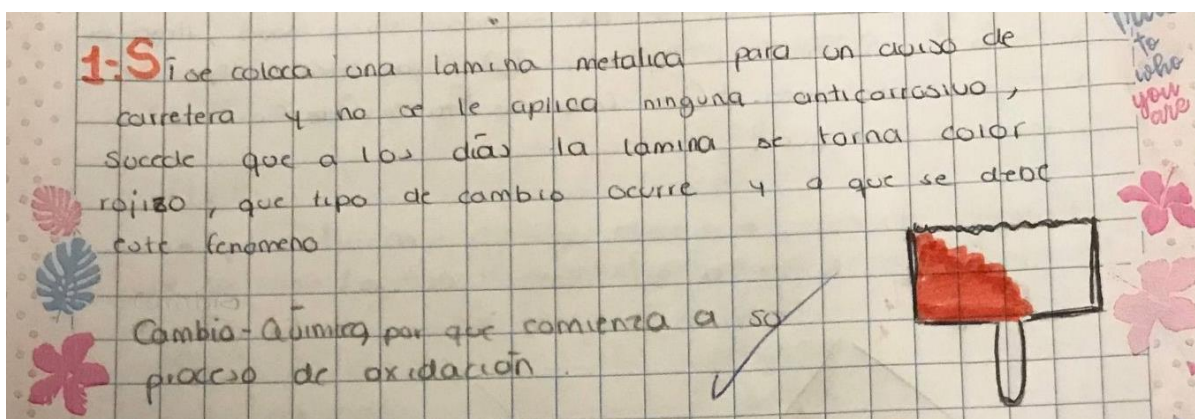 1: Si se coloca una lamina metalica para un aviso de
carretera y no se le aplica ninguna anticorrosivo,
sucede que a los dias la lamina se torna color
rojizo, que tipo de cambio ocurre y a que se debe
este fenomeno
Cambio - Quimico por que comienza a su
proceso de oxidación.
to
who
you
are